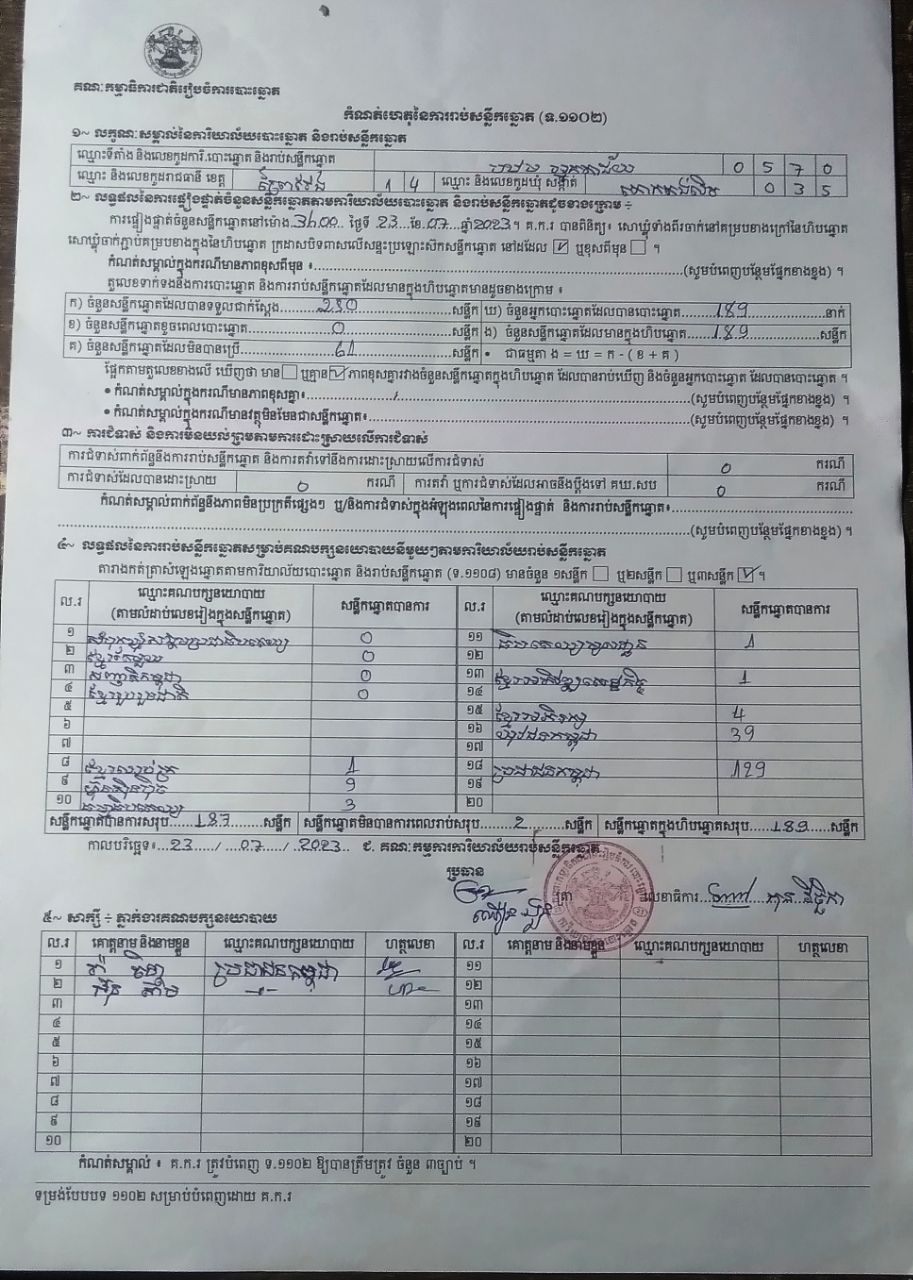 គណៈកម្មាធិការជាតិរៀបចំការបោះឆ្នោត
កំណត់ហេតុនៃការរាប់សន្លឹកឆ្នោត (ទ.១១០២)
១~ លក្ខណៈសម្គាល់នៃការិយាល័យបោះឆ្នោត និងរាប់សន្លឹកឆ្នោត
ឈ្មោះទីតាំង និងលេខកូដការិ.បោះឆ្នោត និងរាប់សន្លឹកឆ្នោត 0 5 7 0
ឈ្មោះ និងលេខកូដរាជធានី ខេត្ត ព្រៃវែង 1 4 ឈ្មោះ និងលេខកូដឃុំ សង្កាត់ 0 3 5
២~ លទ្ធផលនៃការផ្ទៀងផ្ទាត់ចំនួនសន្លឹកឆ្នោតតាមការិយាល័យបោះឆ្នោត និងរាប់សន្លឹកឆ្នោតដូចខាងក្រោម ÷
ការផ្ទៀងផ្ទាត់ចំនួនសន្លឹកឆ្នោតនៅម៉ោង 3h00 ថ្ងៃទី 23 ខែ 07 ឆ្នាំ 2023។ គ.ក.រ បានពិនិត្យ៖ សោឃ្លុំទាំងពីរចាក់នៅគម្របខាងក្រៅនៃហិបឆ្នោត
សោឃ្លុំចាក់ភ្ជាប់គម្របខាងក្នុងនៃហិបឆ្នោត ក្រដាសបិទពាសលើសន្ទះប្រឡោះសិកសន្លឹកឆ្នោត នៅដដែល ☑ ឬខុសពីមុន ☐ ។
កំណត់សម្គាល់ក្នុងករណីមានភាពខុសពីមុន ៖ (សូមបំពេញបន្ថែមផ្នែកខាងខ្នង) ។
តួលេខទាក់ទងនឹងការបោះឆ្នោត និងការរាប់សន្លឹកឆ្នោតដែលមានក្នុងហិបឆ្នោតមានដូចខាងក្រោម ៖
ក) ចំនួនសន្លឹកឆ្នោតដែលបានទទួលជាក់ស្តែង 250 សន្លឹក ឃ) ចំនួនអ្នកបោះឆ្នោតដែលបានបោះឆ្នោត 189 នាក់
ខ) ចំនួនសន្លឹកឆ្នោតខូចពេលបោះឆ្នោត 0 សន្លឹក ង) ចំនួនសន្លឹកឆ្នោតដែលមានក្នុងហិបឆ្នោត 189 សន្លឹក
គ) ចំនួនសន្លឹកឆ្នោតដែលមិនបានប្រើ 61 សន្លឹក • ជាធម្មតា ង = ឃ = ក - ( ខ + គ )
ផ្អែកតាមតួលេខខាងលើ ឃើញថា មាន ☐ ឬគ្មាន ☑ ភាពខុសគ្នារវាងចំនួនសន្លឹកឆ្នោតក្នុងហិបឆ្នោត ដែលបានរាប់ឃើញ និងចំនួនអ្នកបោះឆ្នោត ដែលបានបោះឆ្នោត ។
• កំណត់សម្គាល់ក្នុងករណីមានភាពខុសគ្នា៖ (សូមបំពេញបន្ថែមផ្នែកខាងខ្នង) ។
• កំណត់សម្គាល់ក្នុងករណីមានវត្ថុមិនមែនជាសន្លឹកឆ្នោត៖ (សូមបំពេញបន្ថែមផ្នែកខាងខ្នង) ។
៣~ ការជំទាស់ និងការមិនយល់ព្រមតាមការដោះស្រាយលើការជំទាស់
ការជំទាស់ពាក់ព័ន្ធនឹងការរាប់សន្លឹកឆ្នោត និងការតវ៉ាទៅនឹងការដោះស្រាយលើការជំទាស់ 0 ករណី
ការជំទាស់ដែលបានដោះស្រាយ 0 ករណី ការតវ៉ា ឬការជំទាស់ដែលអាចនឹងប្តឹងទៅ គឃ.សប 0 ករណី
កំណត់សម្គាល់ពាក់ព័ន្ធនឹងភាពមិនប្រក្រតីផ្សេងៗ ឬ/និងការជំទាស់ក្នុងអំឡុងពេលនៃការផ្ទៀងផ្ទាត់ និងការរាប់សន្លឹកឆ្នោត៖
(សូមបំពេញបន្ថែមផ្នែកខាងខ្នង) ។
៤~ លទ្ធផលនៃការរាប់សន្លឹកឆ្នោតសម្រាប់គណបក្សនយោបាយនីមួយៗតាមការិយាល័យរាប់សន្លឹកឆ្នោត
តារាងកត់ត្រាសំឡេងឆ្នោតតាមការិយាល័យបោះឆ្នោត និងរាប់សន្លឹកឆ្នោត (ទ.១១០៨) មានចំនួន ១សន្លឹក ☐ ឬ២សន្លឹក ☐ ឬ៣សន្លឹក ☑ ។
ល.រ ឈ្មោះគណបក្សនយោបាយ (តាមលំដាប់លេខរៀងក្នុងសន្លឹកឆ្នោត) សន្លឹកឆ្នោតបានការ ល.រ ឈ្មោះគណបក្សនយោបាយ (តាមលំដាប់លេខរៀងក្នុងសន្លឹកឆ្នោត) សន្លឹកឆ្នោតបានការ
១ 0 ១១ 1
២ 0 ១២
៣ សញ្ជាតិកម្ពុជា 0 ១៣ ខ្មែរអភិវឌ្ឍន៍សេដ្ឋកិច្ច 1
៤ ខ្មែររួបរួមជាតិ 0 ១៤
៥ ១៥ 4
៦ ១៦ យុវជនកម្ពុជា 39
៧ ១៧
៨ 1 ១៨ ប្រជាជនកម្ពុជា 129
៩ ហ៊្វុនស៊ិនប៉ិច 9 ១៩
១០ 3 ២០
សន្លឹកឆ្នោតបានការសរុប 187 សន្លឹក សន្លឹកឆ្នោតមិនបានការពេលរាប់សរុប 2 សន្លឹក សន្លឹកឆ្នោតក្នុងហិបឆ្នោតសរុប 189 សន្លឹក
កាលបរិច្ឆេទ៖ 23 / 07 / 2023 ជ. គណៈកម្មការការិយាល័យរាប់សន្លឹកឆ្នោត
ប្រធាន
ត្រា លេខាធិការ
៥~ សាក្សី ÷ ភ្នាក់ងារគណបក្សនយោបាយ
ល.រ គោត្តនាម និងនាមខ្លួន ឈ្មោះគណបក្សនយោបាយ ហត្ថលេខា ល.រ គោត្តនាម និងនាមខ្លួន ឈ្មោះគណបក្សនយោបាយ ហត្ថលេខា
១ ប្រជាជនកម្ពុជា ១១
២ ១២
៣ ១៣
៤ ១៤
៥ ១៥
៦ ១៦
៧ ១៧
៨ ១៨
៩ ១៩
១០ ២០
កំណត់សម្គាល់ ៖ គ.ក.រ ត្រូវបំពេញ ទ.១១០២ ឱ្យបានត្រឹមត្រូវ ចំនួន ៣ច្បាប់ ។
ទម្រង់បែបបទ ១១០២ សម្រាប់បំពេញដោយ គ.ក.រ